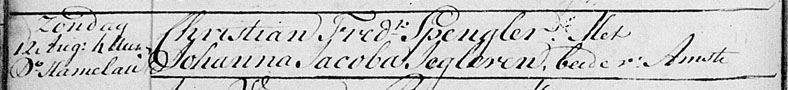 Zondag
12 Aug: 4 Uur
Ds. Hamelau
Christian Fredk. Spengler Jr. Met
Johanna Jacoba Segleren, beide v: Amst: